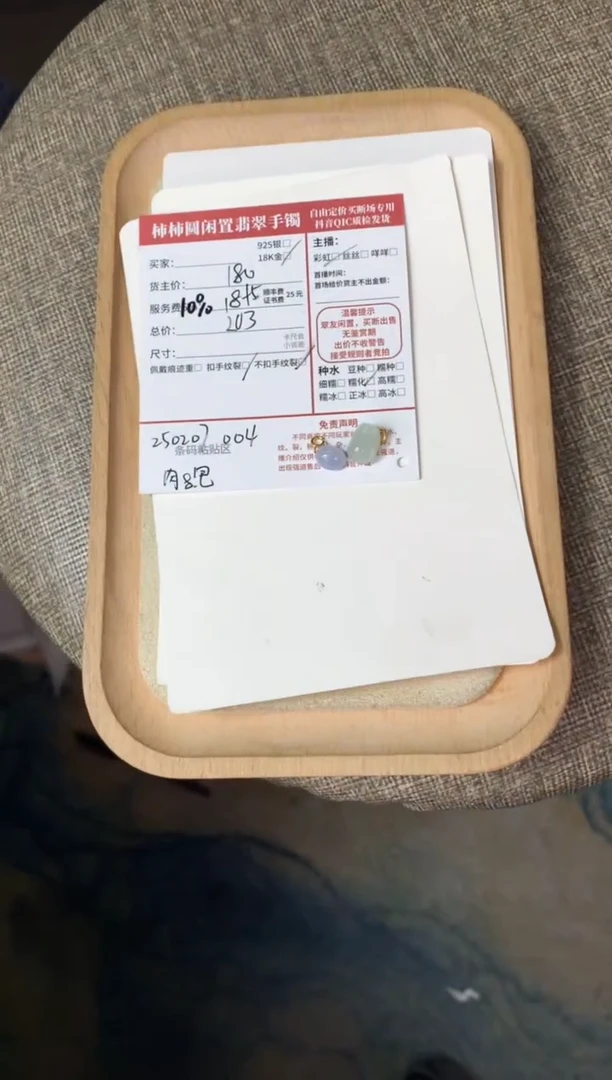 柿柿圆闲置翡翠手镯
自由定价买断场专用
抖音QIC质检发货
925银□
18K金□
买家：
货主价： 180
服务费10% 18+5 顺丰费 证书费 25元
总价： 203
卡尺由
尺寸：
佩戴痕迹重□ 扣手纹裂□ 不扣手纹裂□
主播：
彩虹□ 丝丝□ 咩咩□
首播时间：
首场给价货主不出金额：
温馨提示
翠友闲置，买断出售
无鉴赏期
出价不收警告
接受规则者竞拍
种水 豆种□ 糯种□
细糯□ 糯化□ 高糯□
糯冰□ 正冰□ 高冰□
250207 004
条码粘贴区
肉8包
免责声明